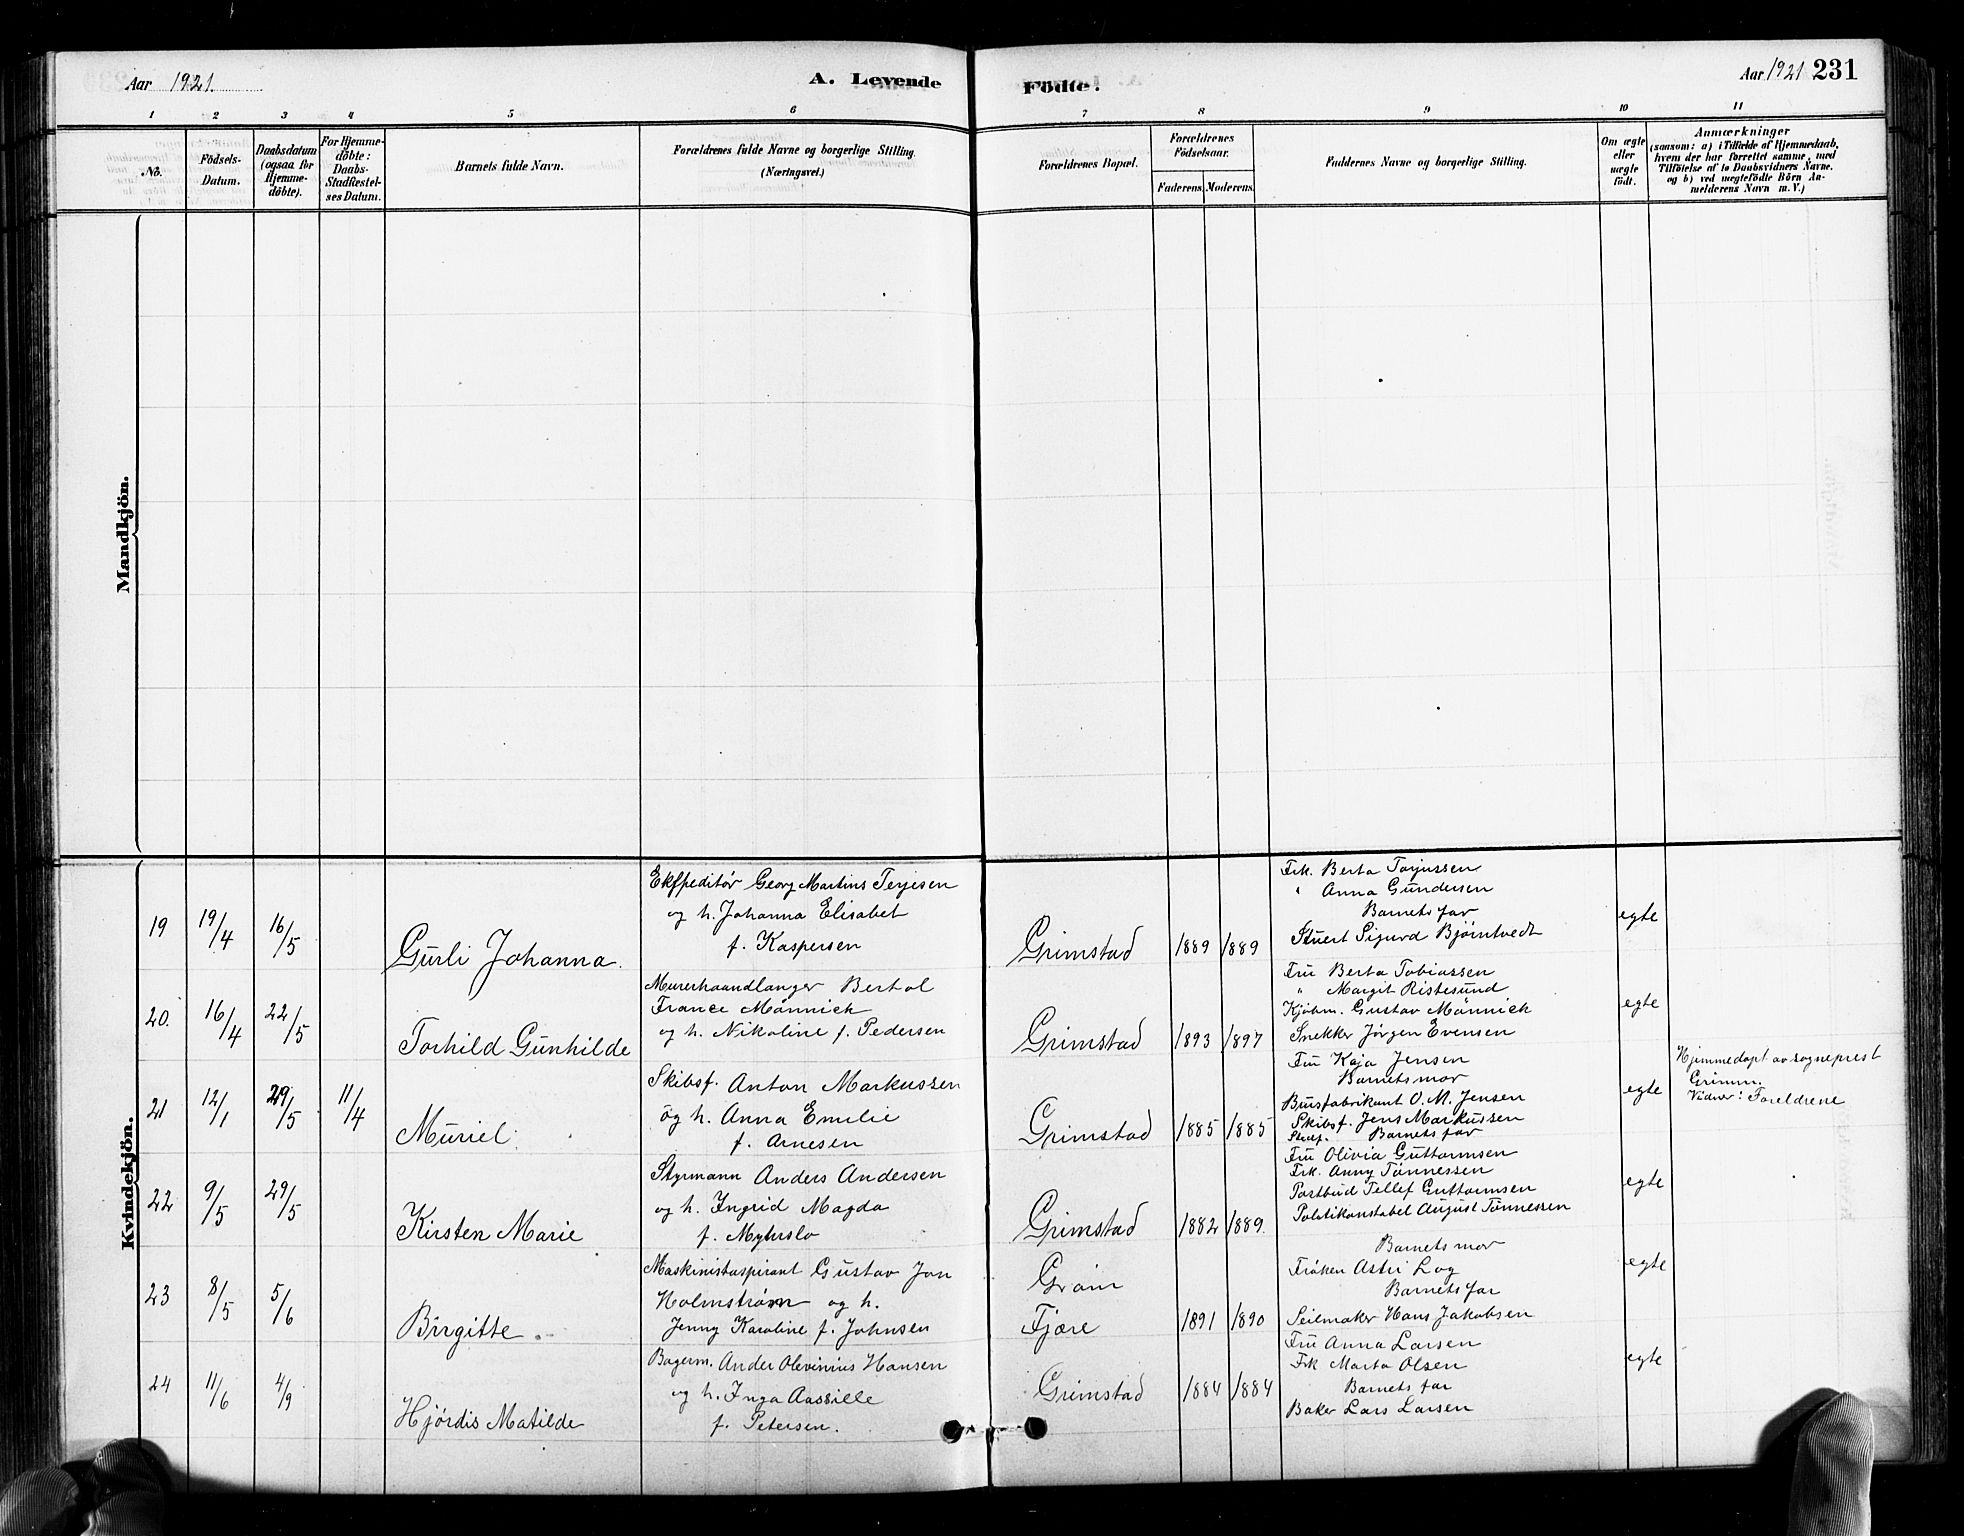 Aar 1921.
A. Levende
Födte.
Aar 1921 231
1 2 3 4 5 6 7 8 9 10 11
No.
Födsels-
Datum.
Daabsdatum
(ogsaa for
Hjemme-
döbte).
For Hjemme-
döbte:
Daabs-
Stadfæstel-
ses Datum.
Barnets fulde Navn.
Forældrenes fulde Navne og borgerlige Stilling.
(Næringsvei.)
Forældrenes Bopæl.
Forældrenes
Födselsaar.
Faderens. Moderens.
Faddernes Navne og borgerlige Stilling.
Om ægte
eller
uægte
födt.
Anmærkninger
(saasom: a) i Tilfælde af Hjemmedaab,
hvem der har forrettet samme, med
Tilföielse af to Daabsvidners Navne.
og b) ved uægtefödte Börn An-
melderens Navn m. V.)
Mandkjön.
Kvindekjön.
19
19/4
16/5
Gurli Johanna.
Ekspeditør Georg Martins Terjesen
og h. Johanna Elisabet
f. Kaspersen
Grimstad
1889 1889
Frk. Berta Torjussen
" Anna Gundersen
Barnets far
Stuert Sigurd Bjørntvedt
egte
20.
16/4
22/5
Torhild Gunhilde
Murerhaandlanger Bertol
France Mønnich
og h. Nikoline f. Pedersen
Grimstad
1893 1897
Fru Berta Tobiassen
" Margit Ristesund
Kjøbm. Gustav Mønnich
Snekker Jørgen Evensen
egte
21
12/1
29/5
11/4
Muriel.
Skibsf. Anton Markussen
og h. Anna Emilie
f. Arnesen
Grimstad
1885 1885
Fru Kaja Jensen
Barnets mor
Brusfabrikant O. M. Jensen
Skibsf. Jens Markussen
Barnets far
egte
Hjemmedøpt av sogneprest
Grimm.
Vidner: Foreldrene
22
9/5
29/5
Kirsten Marie
Styrmann Anders Andersen
og h. Ingrid Magda
f. Myhrslo
Grimstad
1882 1889.
Fru Olivia Guttormsen
Frk. Anny Tønnessen
Postbud Tellef Guttormsen
Politikonstabel August Tønnessen
egte
23
8/5
5/6
Birgitte.
Maskinistaspirant Gustav Jon
Holmstrøm og h.
Jenny Karoline f. Johnsen
Grøm
Fjære
1891 1890
Barnets mor
Frøken Astri Log
Barnets far
Seilmaker Hans Jakobsen
egte
24
11/6
4/9
Hjørdis Matilde
Bagerm. Ander Olevinius Hansen
og h. Inga Aassille
f. Petersen.
Grimstad
1884 1884
Fru Anna Larsen
Frk Marta Olsen
Barnets far
Baker Lars Larsen
egte